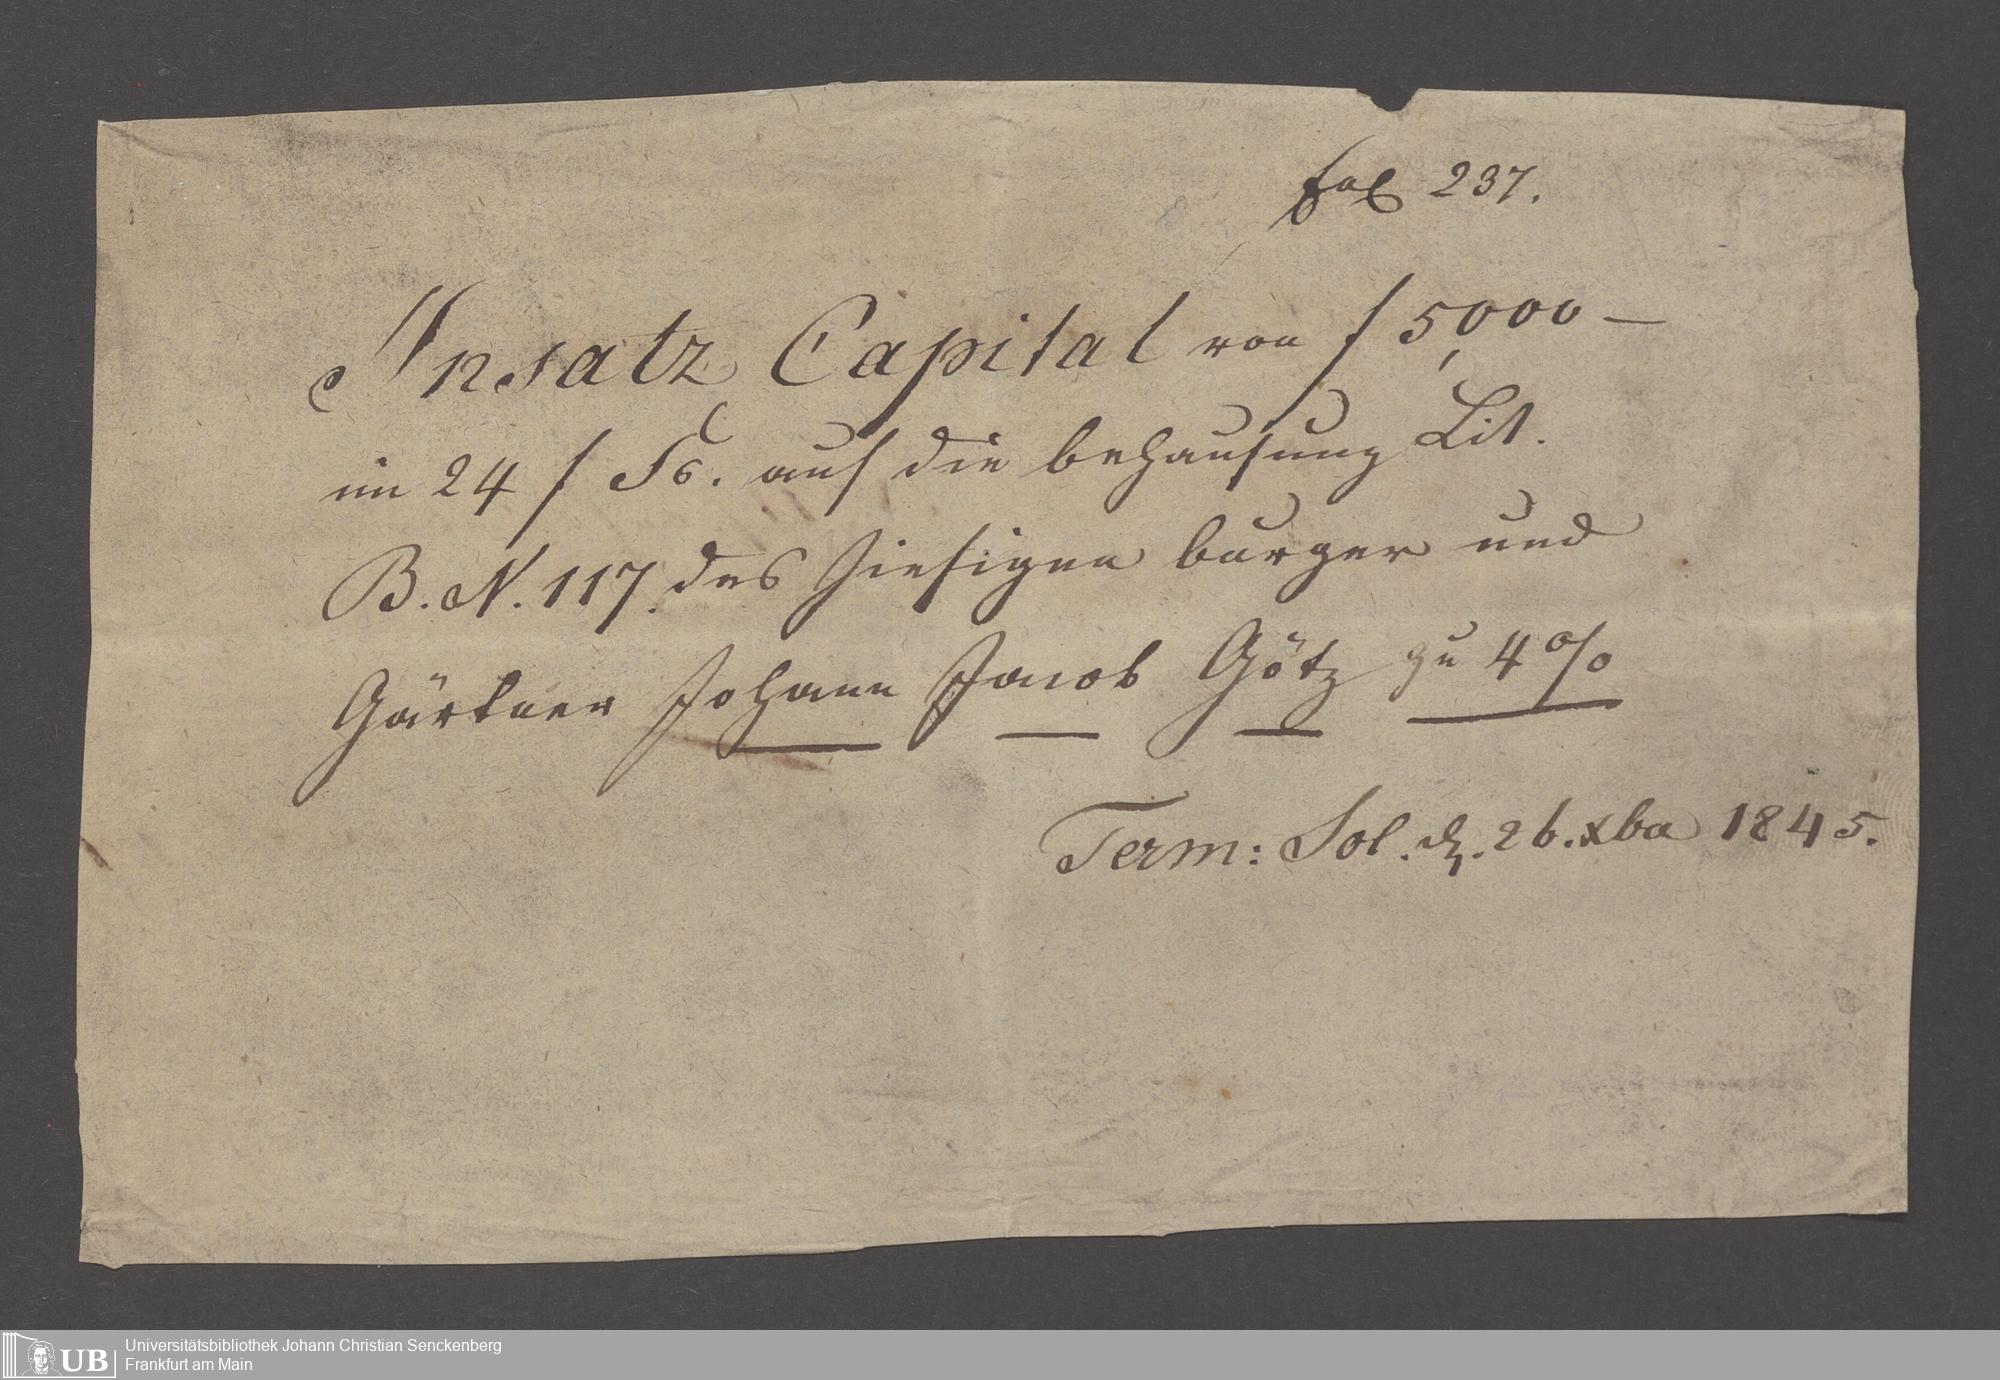 fol 237.
Insatz Capital von f 5,000 —
im 24 f Fß. auf die behausung Lit.
B. N. 117. des hiesigen burger und
Gärtner Johann Jacob Götz zu 4%
Term: Sol. d. 26. xba 1845.
UB
Universitätsbibliothek Johann Christian Senckenberg
Frankfurt am Main